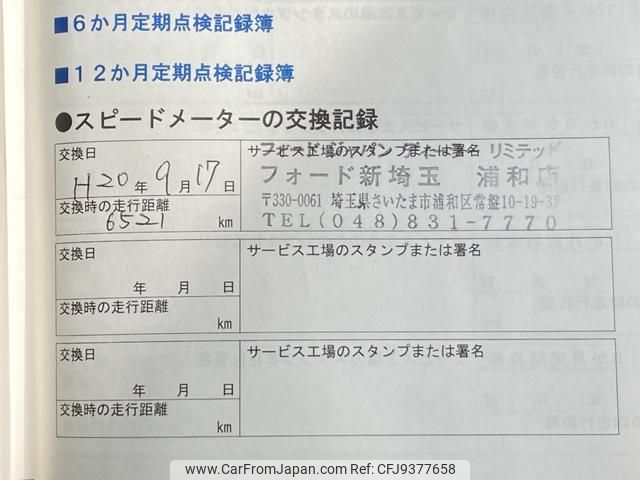 ■6か月定期点検記録簿
■12か月定期点検記録簿
●スピードメーターの交換記録
交換日
H20年9月17日
交換時の走行距離
6521 km
サービス工場のスタンプまたは署名
リミテッド
フォード新埼玉 浦和店
〒330-0061 埼玉県さいたま市浦和区常盤10-19-38
TEL(048)831-7770
交換日
年 月 日
交換時の走行距離
km
サービス工場のスタンプまたは署名
交換日
年 月 日
交換時の走行距離
km
サービス工場のスタンプまたは署名
www.CarFromJapan.com | REF No. CFJ9377658